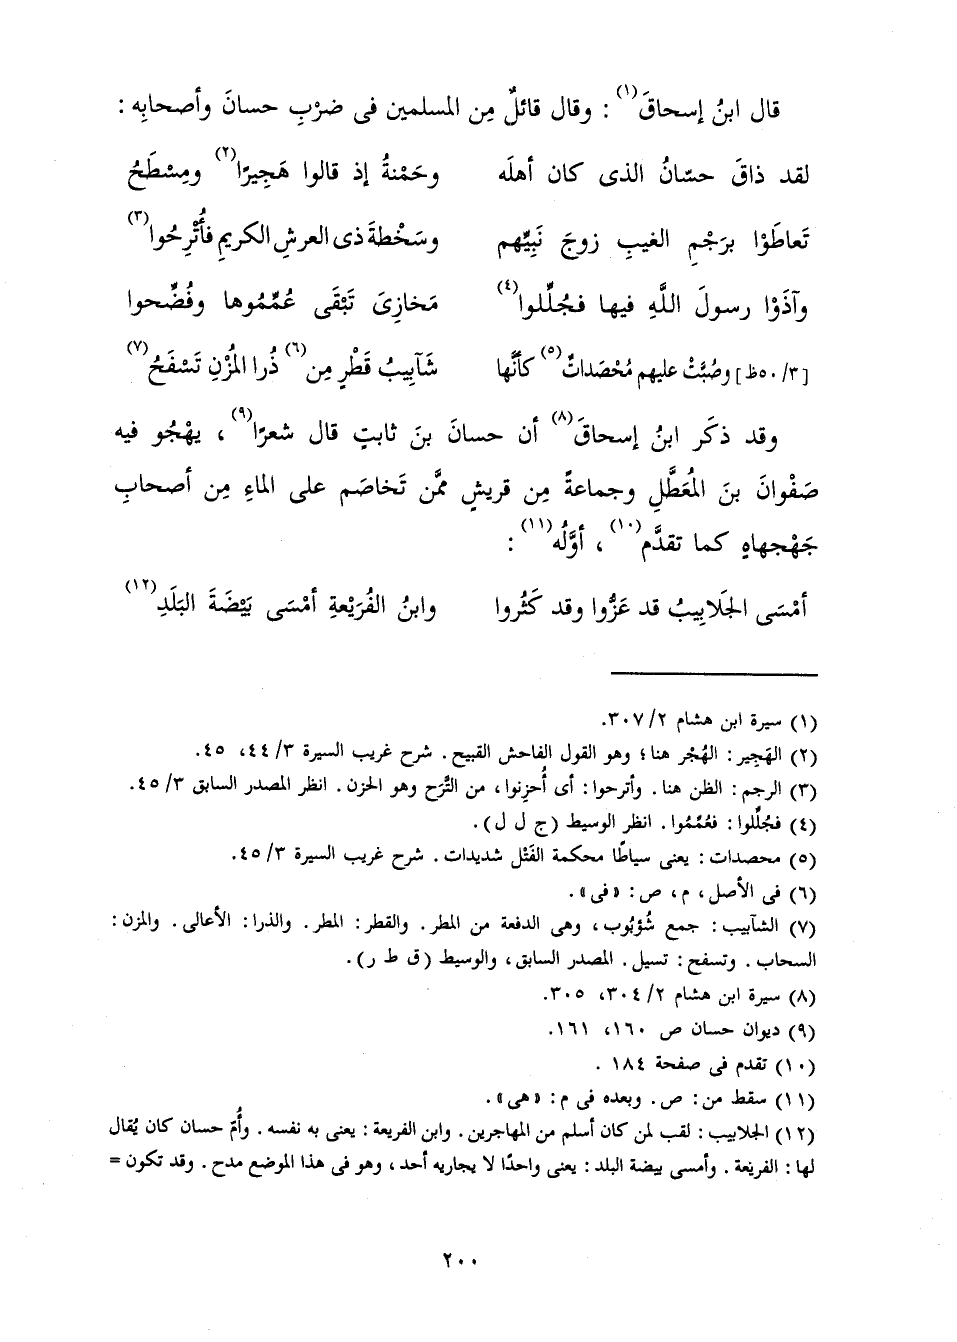 قال ابنُ إسحاقَ(١) : وقال قائلٌ مِن المسلمين فى ضرْبِ حسانَ وأصحابِه :
لقد ذاقَ حسّانُ الذى كان أهلَه وحَمْنةُ إذ قالوا هَجِيرًا(٢) ومِسْطَحُ
تَعاطَوْا برَجْمِ الغيبِ زوجَ نَبِيِّهم وسَخْطةَ ذى العرشِ الكريمِ فأُتْرِحُوا(٣)
وآذَوْا رسولَ اللَّهِ فيها فجُلِّلوا(٤) مَخازِىَ تَبْقَى عُمِّمُوها وفُضِّحوا
[٣/٥٠ظ] وصُبَّتْ عليهم مُحْصَداتٌ(٥) كأنَّها شَآبِيبُ قَطْرٍ مِن(٦) ذُرا المُزْنِ تَسْفَحُ(٧)
وقد ذكَر ابنُ إسحاقَ(٨) أن حسانَ بنَ ثابتٍ قال شعرًا(٩) ، يهْجُو فيه
صَفْوانَ بنَ المُعَطَّلِ وجماعةً مِن قريشٍ ممَّن تَخاصَم على الماءِ مِن أصحابِ
جَهْجهاهٍ كما تقدَّم(١٠) ، أوَّلُه(١١) :
أمْسَى الجَلابِيبُ قد عَزُّوا وقد كَثُروا وابنُ الفُرَيْعةِ أمْسَى بَيْضَةَ البَلَدِ(١٢)
(١) سيرة ابن هشام ٢/ ٣٠٧.
(٢) الهَجِير : الهُجْر هنا؛ وهو القول الفاحش القبيح . شرح غريب السيرة ٣/ ٤٤، ٤٥.
(٣) الرجم : الظن هنا . وأترحوا : أى أُحزِنوا، من التَّرَح وهو الحزن . انظر المصدر السابق ٣/ ٤٥.
(٤) فجُلِّلوا : فعُمِّمُوا . انظر الوسيط (ج ل ل).
(٥) محصدات : يعنى سياطًا محكمة الفَتْل شديدات . شرح غريب السيرة ٣/ ٤٥.
(٦) فى الأصل، م، ص : «فى».
(٧) الشآبيب : جمع شُؤبُوب، وهى الدفعة من المطر . والقطر : المطر . والذرا : الأعالى . والمزن :
السحاب . وتسفح : تسيل . المصدر السابق، والوسيط (ق ط ر).
(٨) سيرة ابن هشام ٢/ ٣٠٤، ٣٠٥.
(٩) ديوان حسان ص ١٦٠، ١٦١.
(١٠) تقدم فى صفحة ١٨٤ .
(١١) سقط من : ص . وبعده فى م : «هى».
(١٢) الجلابيب : لقب لمن كان أسلم من المهاجرين . وابن الفريعة : يعنى به نفسه . وأُمّ حسان كان يُقال
لها : الفريعة . وأمسى بيضة البلد : يعنى واحدًا لا يجاريه أحد، وهو فى هذا الموضع مدح . وقد تكون =
٢٠٠